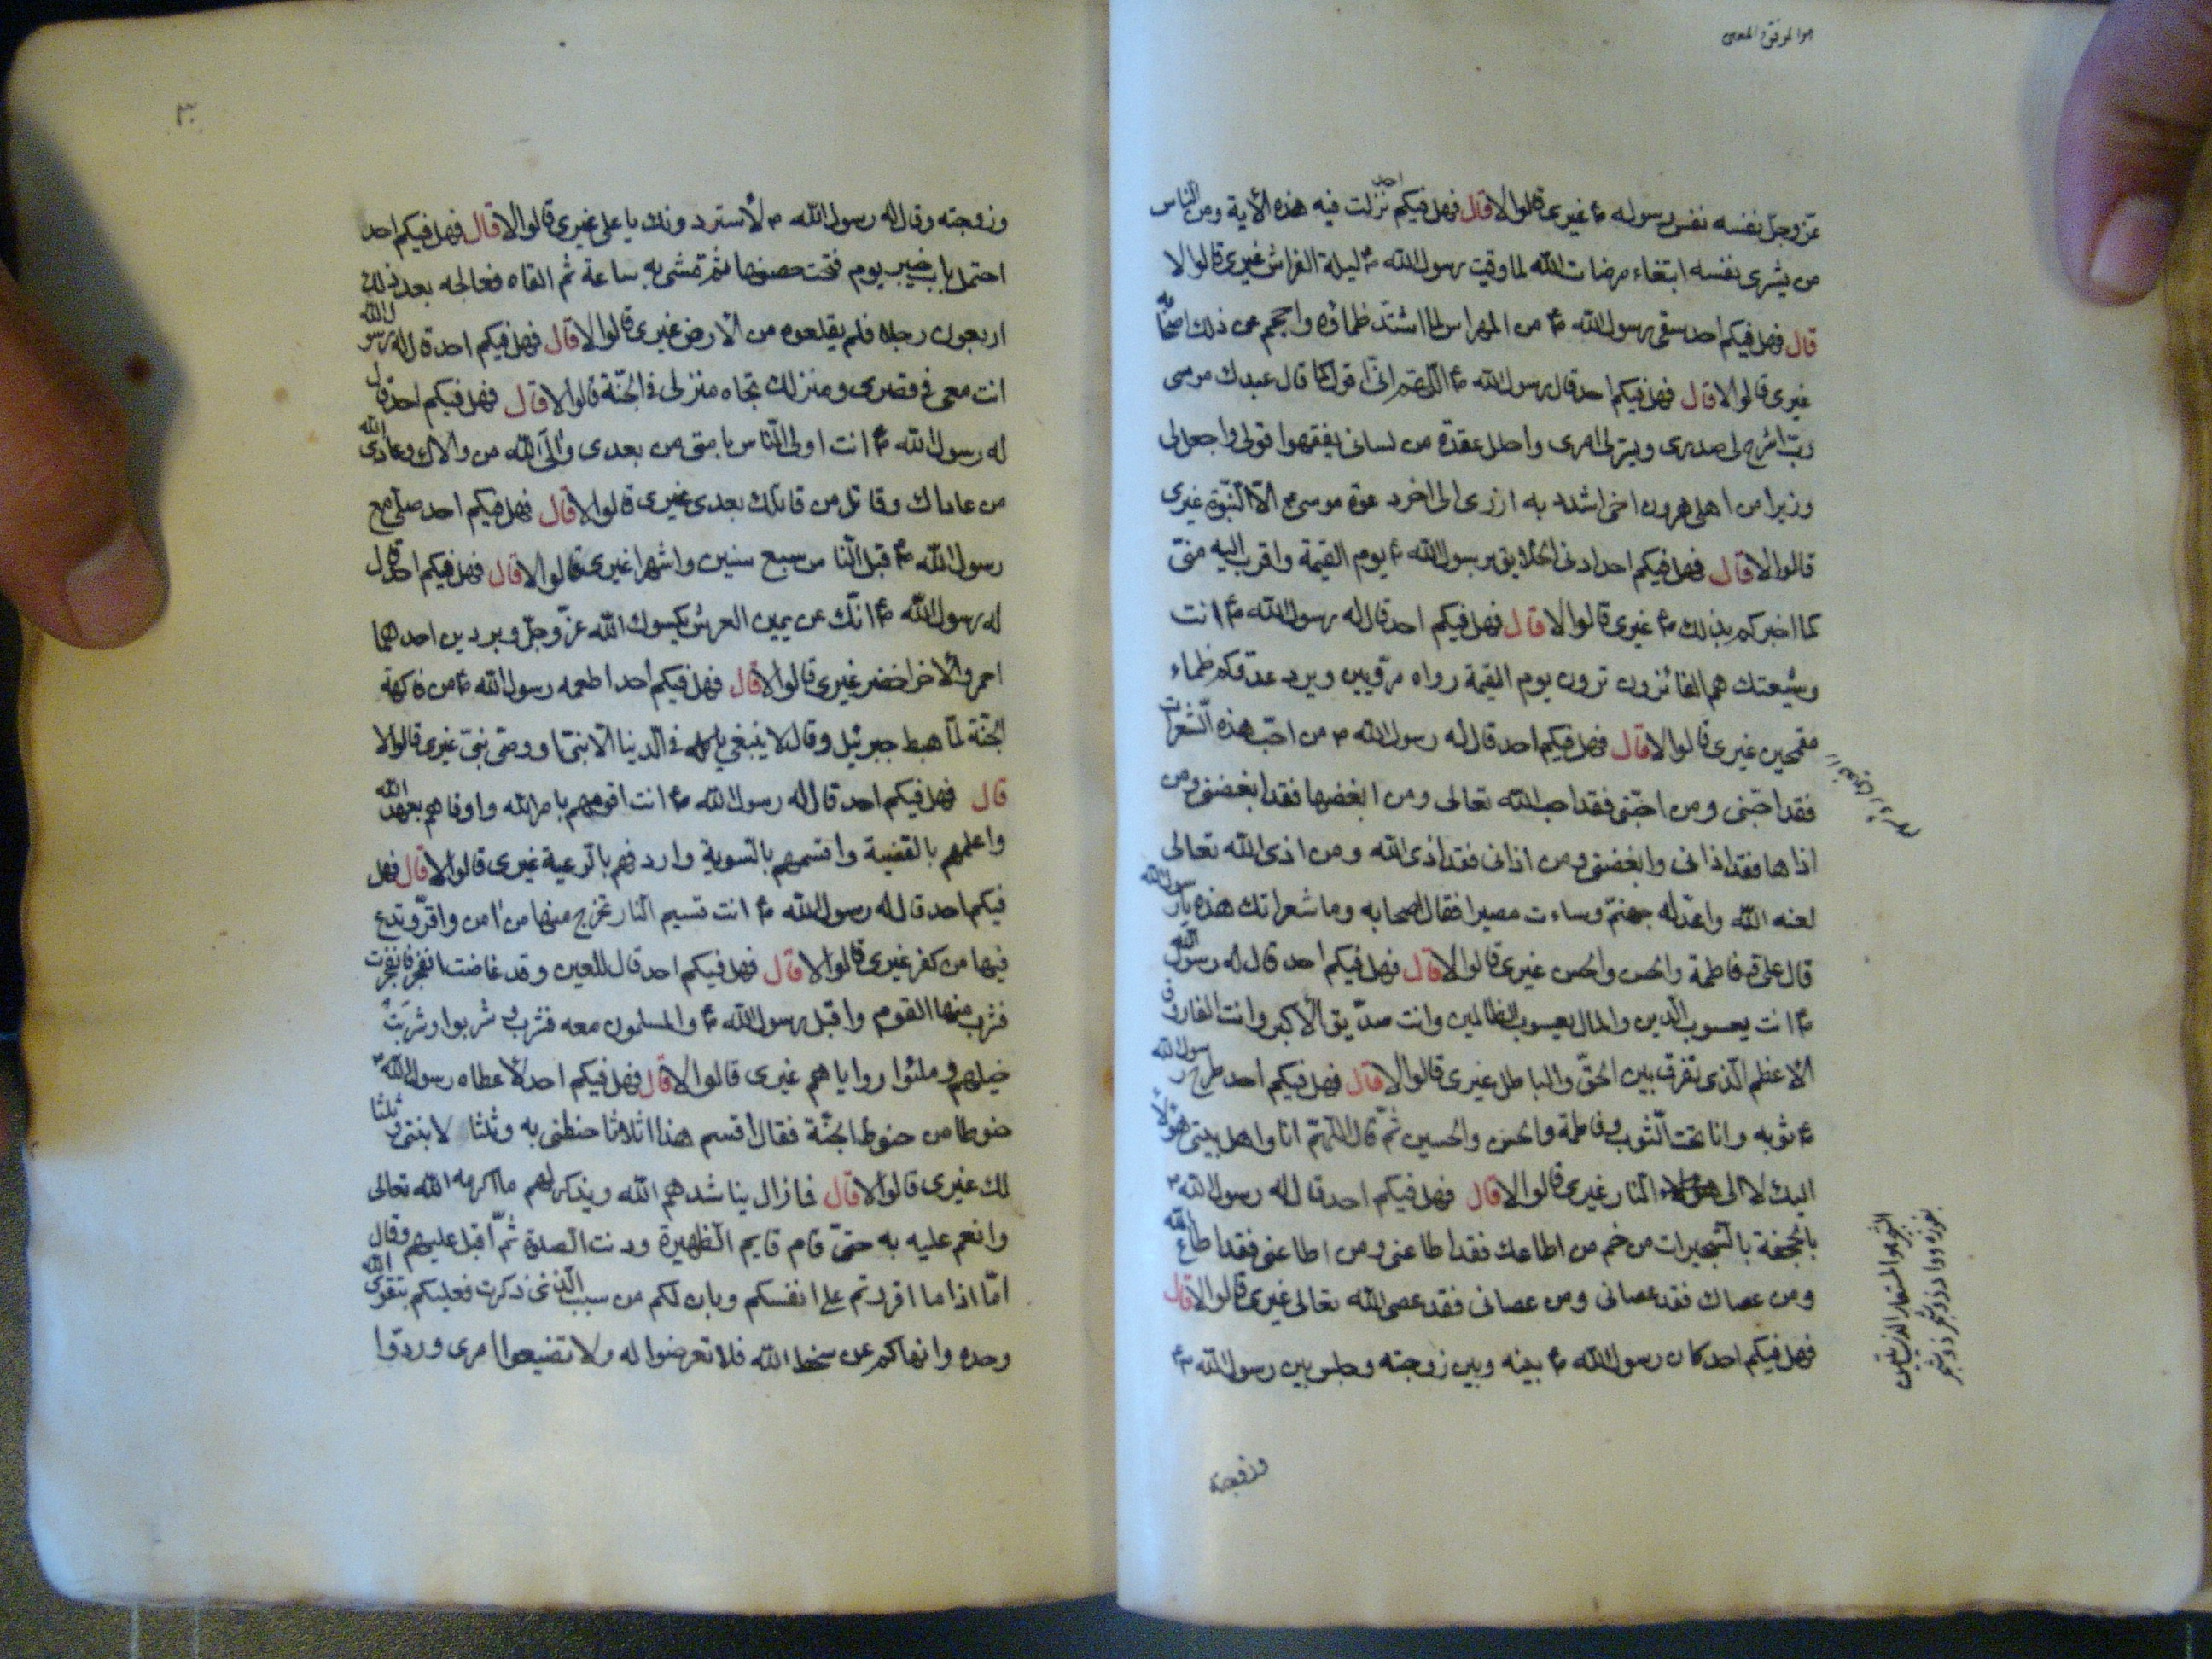 هو الموفق والمعين
عزوجل نفسه نفس رسوله ص غيرى قالوا لا قال فهل فيكم احد نزلت فيه هذه الأية ومن الناس
من يشرى نفسه ابتغاء مرضات الله لما وقيت رسول الله ص ليلة الفراش غيرى قالوا لا
قال فهل فيكم احد سقى رسول الله ص من المهراس لما اشتد ظماؤه واحجم عن ذلك اصحابه
غيرى قالوا لا قال فهل فيكم احد قال رسول الله ص اللهم انى اقول كما قال عبدك موسى
رب اشرح لى صدرى ويسر لى امرى واحلل عقدة من لسانى يفقهوا قولى واجعل لى
وزيرا من اهلى هرون اخى اشدد به ازرى الى اخر دعوة موسى ع الا النبوة غيرى
قالوا لا قال فهل فيكم احد ادنى الخلايق برسول الله ص يوم القيمة واقرب اليه منى
كما اخبركم بذلك ص غيرى قالوا لا قال فهل فيكم احد قال له رسول الله ص انت
وشيعتك هم الفائزون تردون يوم القيمة رواه مرويين ويرد عدوكم ظماء
مقمحين غيرى قالوا لا قال فهل فيكم احد قال له رسول الله ص من احب هذه الشعرات
فقد احبنى ومن احبنى فقد احب الله تعالى ومن ابغضها فقد ابغضنى ومن
اذاها فقد اذانى وابغضنى ومن اذانى فقد اذى الله ومن اذى الله تعالى
لعنه الله واعد له جهنم وساءت مصيرا فقال اصحابه وما شعراتك هذه يا رسول الله
قال على و فاطمة والحسن والحسين غيرى قالوا لا قال فهل فيكم احد قال له رسول الله
ص انت يعسوب الدين والمال يعسوب الظالمين وانت صديق الأكبر وانت الفاروق
الأعظم الذى تفرق بين الحق والباطل غيرى قالوا لا قال فهل فيكم احد طرح رسول الله
ص ثوبه وانا تحت الثوب وفاطمة والحسن والحسين ثم قال اللهم انا واهل بيتى هؤلاء
اليك لا الى النار غيرى قالوا لا قال فهل فيكم احد قال له رسول الله ص
بالجحفة بالشجيرات من خم من اطاعك فقد اطاعنى ومن اطاعنى فقد اطاع الله
ومن عصاك فقد عصانى ومن عصانى فقد عصى الله تعالى غيرى قالوا لا قال
فهل فيكم احد كان رسول الله ص بينه وبين زوجته وجلس بين رسول الله ص
وزوجته
٣٠
وزوجته وقال له رسول الله ص لأستر دونك يا على غيرى قالوا لا قال فهل فيكم احد
احتمل باب خيبر يوم فتحت حصنها ثم مشى به ساعة ثم القاه فعالجه بعد ذلك
اربعون رجلا فلم يقلعوه من الأرض غيرى قالوا لا قال فهل فيكم احد قال له رسول الله
انت معى فى قصرى ومنزلك تجاه منزلى فى الجنة قالوا لا قال فهل فيكم احد قال
له رسول الله ص انت اولى الناس بامتى من بعدى والى الله من والاك وعادى الله
من عاداك وقاتل من قاتلك بعدى غيرى قالوا لا قال فهل فيكم احد صلى مع
رسول الله ص قبل الناس سبع سنين واشهرا غيرى قالوا لا قال فهل فيكم احد قال
له رسول الله ص انك عن يمين العرش يكسوك الله عزوجل وبردين احدهما
احمر والأخر اخضر غيرى قالوا لا قال فهل فيكم احد اطعمه رسول الله ص من فاكهة
الجنة لما هبط جبرئيل وقال لا ينبغى ياكله فى الدنيا الا نبى او وصى نبى غيرى قالوا لا
قال فهل فيكم احد قال له رسول الله ص انت اقومهم بامر الله واوفاهم بعهد الله
واعلمهم بالقضية واقسمهم بالسوية واردفهم بالرعية غيرى قالوا لا قال فهل
فيكم احد قال له رسول الله ص انت قسيم النار تخرج منها من امن واقر وتدع
فيها من كفر غيرى قالوا لا قال فهل فيكم احد قال للعين وقد غاضت انفجر فانفجرت
فشرب منها القوم واقبل رسول الله ص والمسلمون معه فشرب و شربوا وشربت
خيلهم وملئوا رواياهم غيرى قالوا لا قال فهل فيكم احد لأعطاه رسول الله ص
حنوطا من حنوط الجنة فقال اقسم هذا اثلاثا حنطنى به وثلثا لابنتى وثلثا
لك غيرى قالوا لا قال فما زال يناشدهم الله ويذكر لهم ما اكرمه الله تعالى
وانعم عليه به حتى قام قايم الظهيرة ودنت الصلوة ثم اقبل عليهم وقال
اما اذا ما اقررتم على انفسكم وبان لكم من سبب الذى ذكرت فعليكم بتقوى الله
وحده وانهاكم عن سخط الله فلا تعرضوا له ولا تضيعوا امرى وردوا